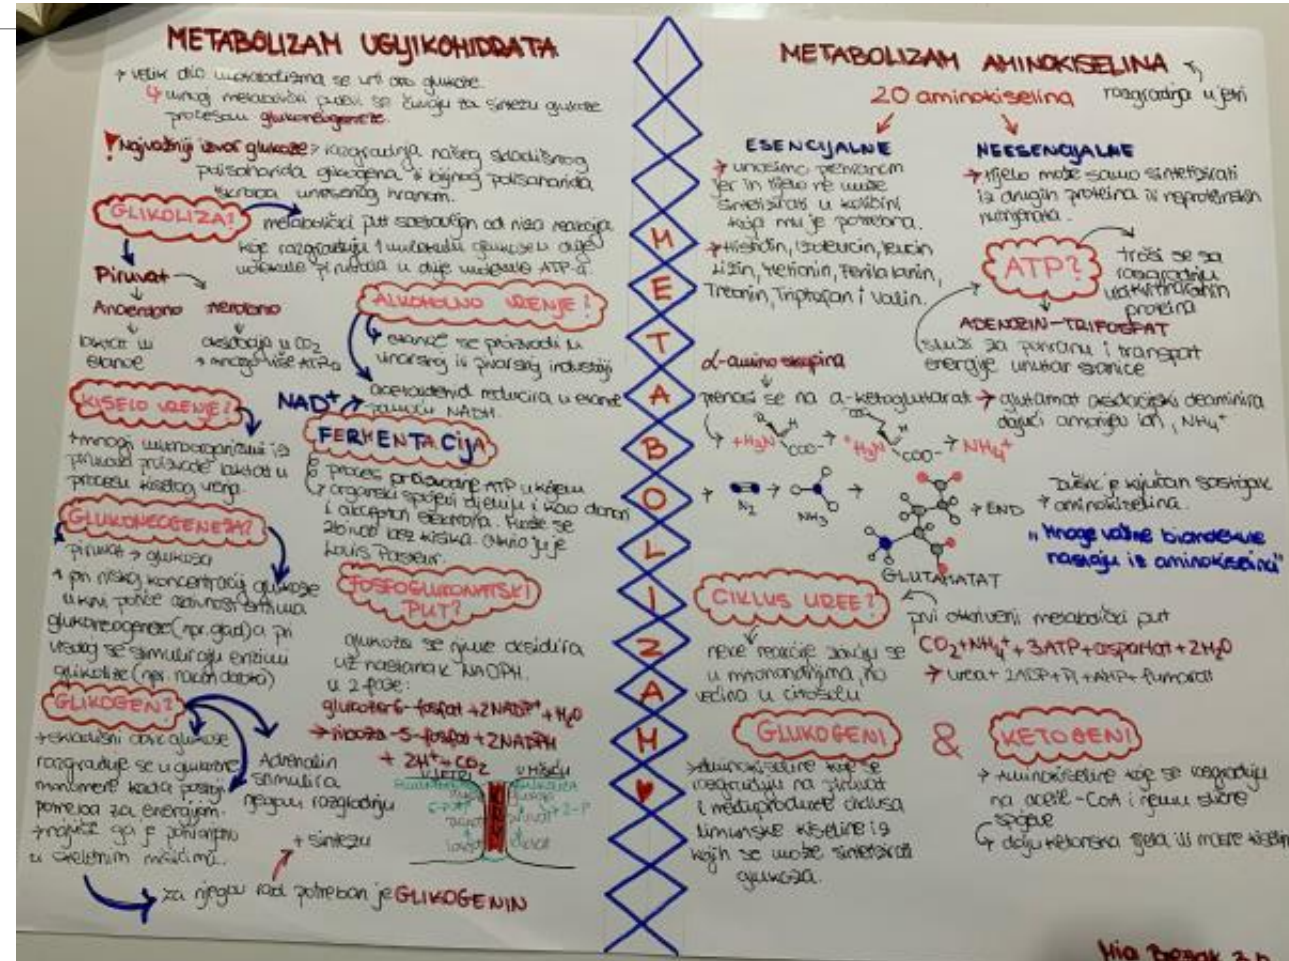 METABOLIZAM UGLJIKOHIDRATA
→ velik dio metabolizma se vrti oko glukoze.
↳ mnogi metabolički putevi se čuvaju za sintezu glukoze
procesom glukoneogeneze.
! Najvažniji izvor glukoze > razgradnja našeg skladišnog
polisaharida glikogena i biljnog polisaharida
škroba unesenog hranom.
GLIKOLIZA?
metabolički put sastavljen od niza reakcija
koje razgrađuju 1 molekulu glukoze u dvije
molekule piruvata u dvije molekule ATP-a.
Piruvat
Anaerobno
Aerobno
laktat ili
etanol
oksidacija u CO2
→ mnogo više ATP-a
ALKOHOLNO VRENJE?
etanol se proizvodi u
vinarskoj i pivarskoj industriji
acetaldehid reducira u etanol
pomoću NADH.
KISELO VRENJE?
NAD+
→ mnogi mikroorganizmi iz
piruvata proizvode laktat u
procesu kiselog vrenja.
FERMENTACIJA
proces proizvodnje ATP u kojem
organski spojevi djeluju i kao donori
i akceptori elektrona. Može se
zbivati bez kisika. Otkrio ju je
Louis Pasteur.
GLUKONEOGENEZA?
piruvat → glukoza
pri niskoj koncentraciji glukoze
u krvi
aktivnost enzima
glukoneogeneze (npr. glad) a pri
visokoj se stimuliraju enzimi
glikolize (npr. nakon obroka)
FOSFOGLUKONATSKI
PUT?
glukoza se njime oksidira
uz nastanak NADPH.
u 2 faze:
glukoza-6-fosfat + 2NADP+ + H2O
→ riboza-5-fosfat + 2NADPH
+ 2H+ + CO2
GLIKOGEN?
→ skladišni oblik glukoze
razgrađuje se u glukozne
monomere kada postoji
potreba za energijom.
→ najviše ga je pohranjeno
u skeletnim mišićima.
Adrenalin
stimulira
njegovu razgradnju
+ sintezu
→ za njegov rad potreban je GLIKOGENIN
U JETRI
U MIŠIĆU
METABOLIZAM ♥
METABOLIZAM AMINOKISELINA
razgradnja u jetri
20 aminokiselina
ESENCIJALNE
→ unosimo prehranom
jer ih tijelo ne može
sintetizirati u količini
koja mu je potrebna.
→ Histidin, Izoleucin, leucin
Lizin, Metionin, Fenilalanin,
Treonin, Triptofan i Valin.
NEESENCIJALNE
→ tijelo može samo sintetizirati
iz drugih proteina ili neproteinskih
nutrijenata.
ATP?
troši se za
razgradnju
proteina
ADENOZIN-TRIFOSFAT
služi za pohranu i transport
energije unutar stanice
α-amino skupina
prenosi se na α-ketoglutarat → glutamat oksidacijski deaminira
dajući amonijev ion, NH4+
+H3N
COO-
+H3N
COO-
NH4+
N2
NH3
→ END
GLUTAMAT
Dušik je ključan sastojak
aminokiselina.
"Mnoge važne biomolekule
nastaju iz aminokiselina"
CIKLUS UREE?
prvi otkriveni metabolički put
neke reakcije zbivaju se
u mitohondrijima, no
većina u citosolu
CO2 + NH4+ + 3ATP + aspartat + 2H2O
→ urea + 2ADP + Pi + AMP + fumarat
GLUKOGENI & KETOGENI
→ Aminokiseline koje se
razgrađuju na piruvat
i međuprodukte ciklusa
limunske kiseline iz
kojih se može sintetizirati
glukoza.
→ Aminokiseline koje se razgrađuju
na acetil-CoA i njemu slične
spojeve
↳ daju ketonska tijela ili masne kiseline